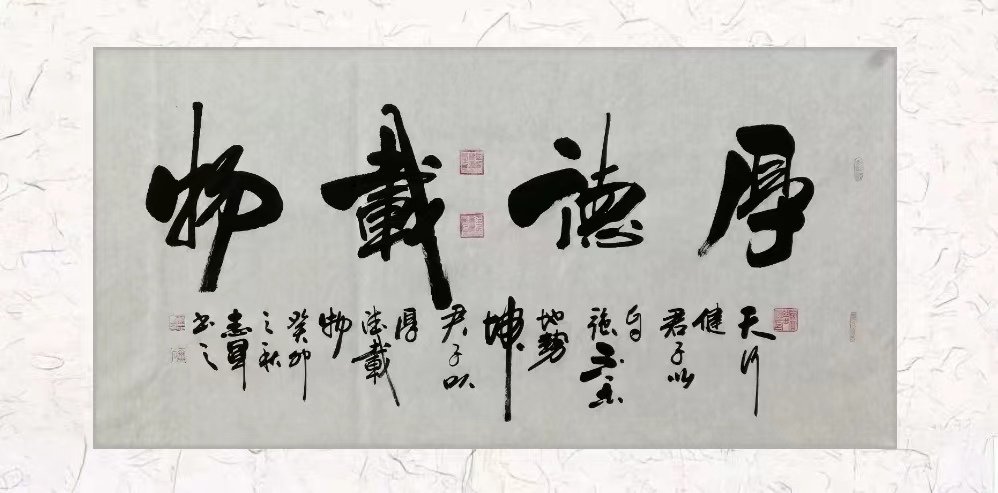 厚德載物
天行
健
君子以
自
强不息
地勢
坤
君子以
厚
德載
物
癸卯
之秋
志軍
書之